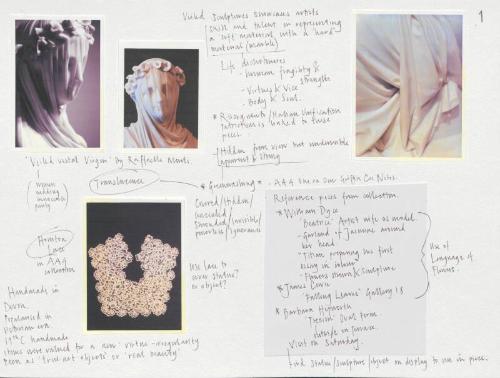 1
Veiled sculptures showcases artists
skill and talent in representing
a soft material with a hard
material (marble)
Life dichotomies
- human fragility &
strength
- Virtue & Vice
- Body & Soul.
* Risorgimento/Italian Unification
patriotism is linked to these
pieces.
Hidden from view but undeniable
apparent & strong
'Veiled Vestal Virgin' by Raffaelle Monti.
women
symbolising
purity
Translucence
* Greenwashing - AAG theme on Griffin Coe Notes.
Covered/Hidden/
concealed
Shrouded/invisible/
powerless/ignorance
Honiton
Lace
in AAG
collection
Use lace to
cover statue?
or object?
Handmade in
Devon.
Popularised in
Victorian era.
19th C handmade
items were valued for a new virtue - irregularity
Seen as 'true art objects' or 'real beauty'
Reference pieces from collection.
* William Dyce
'Beatrice' Artist wife as model
- Garland of Jasmine around
her head
- 'Titian preparing his first
essay in colour'
- Flowers strewn & sculpture
* James Cowie
'Falling Leaves' Gallery 18
* Barbara Hepworth
'Oval Form'
outside on terrace.
Visit on Saturday.
Find statue/sculpture/object on display to use in piece.
Use of
Language of
Flowers.